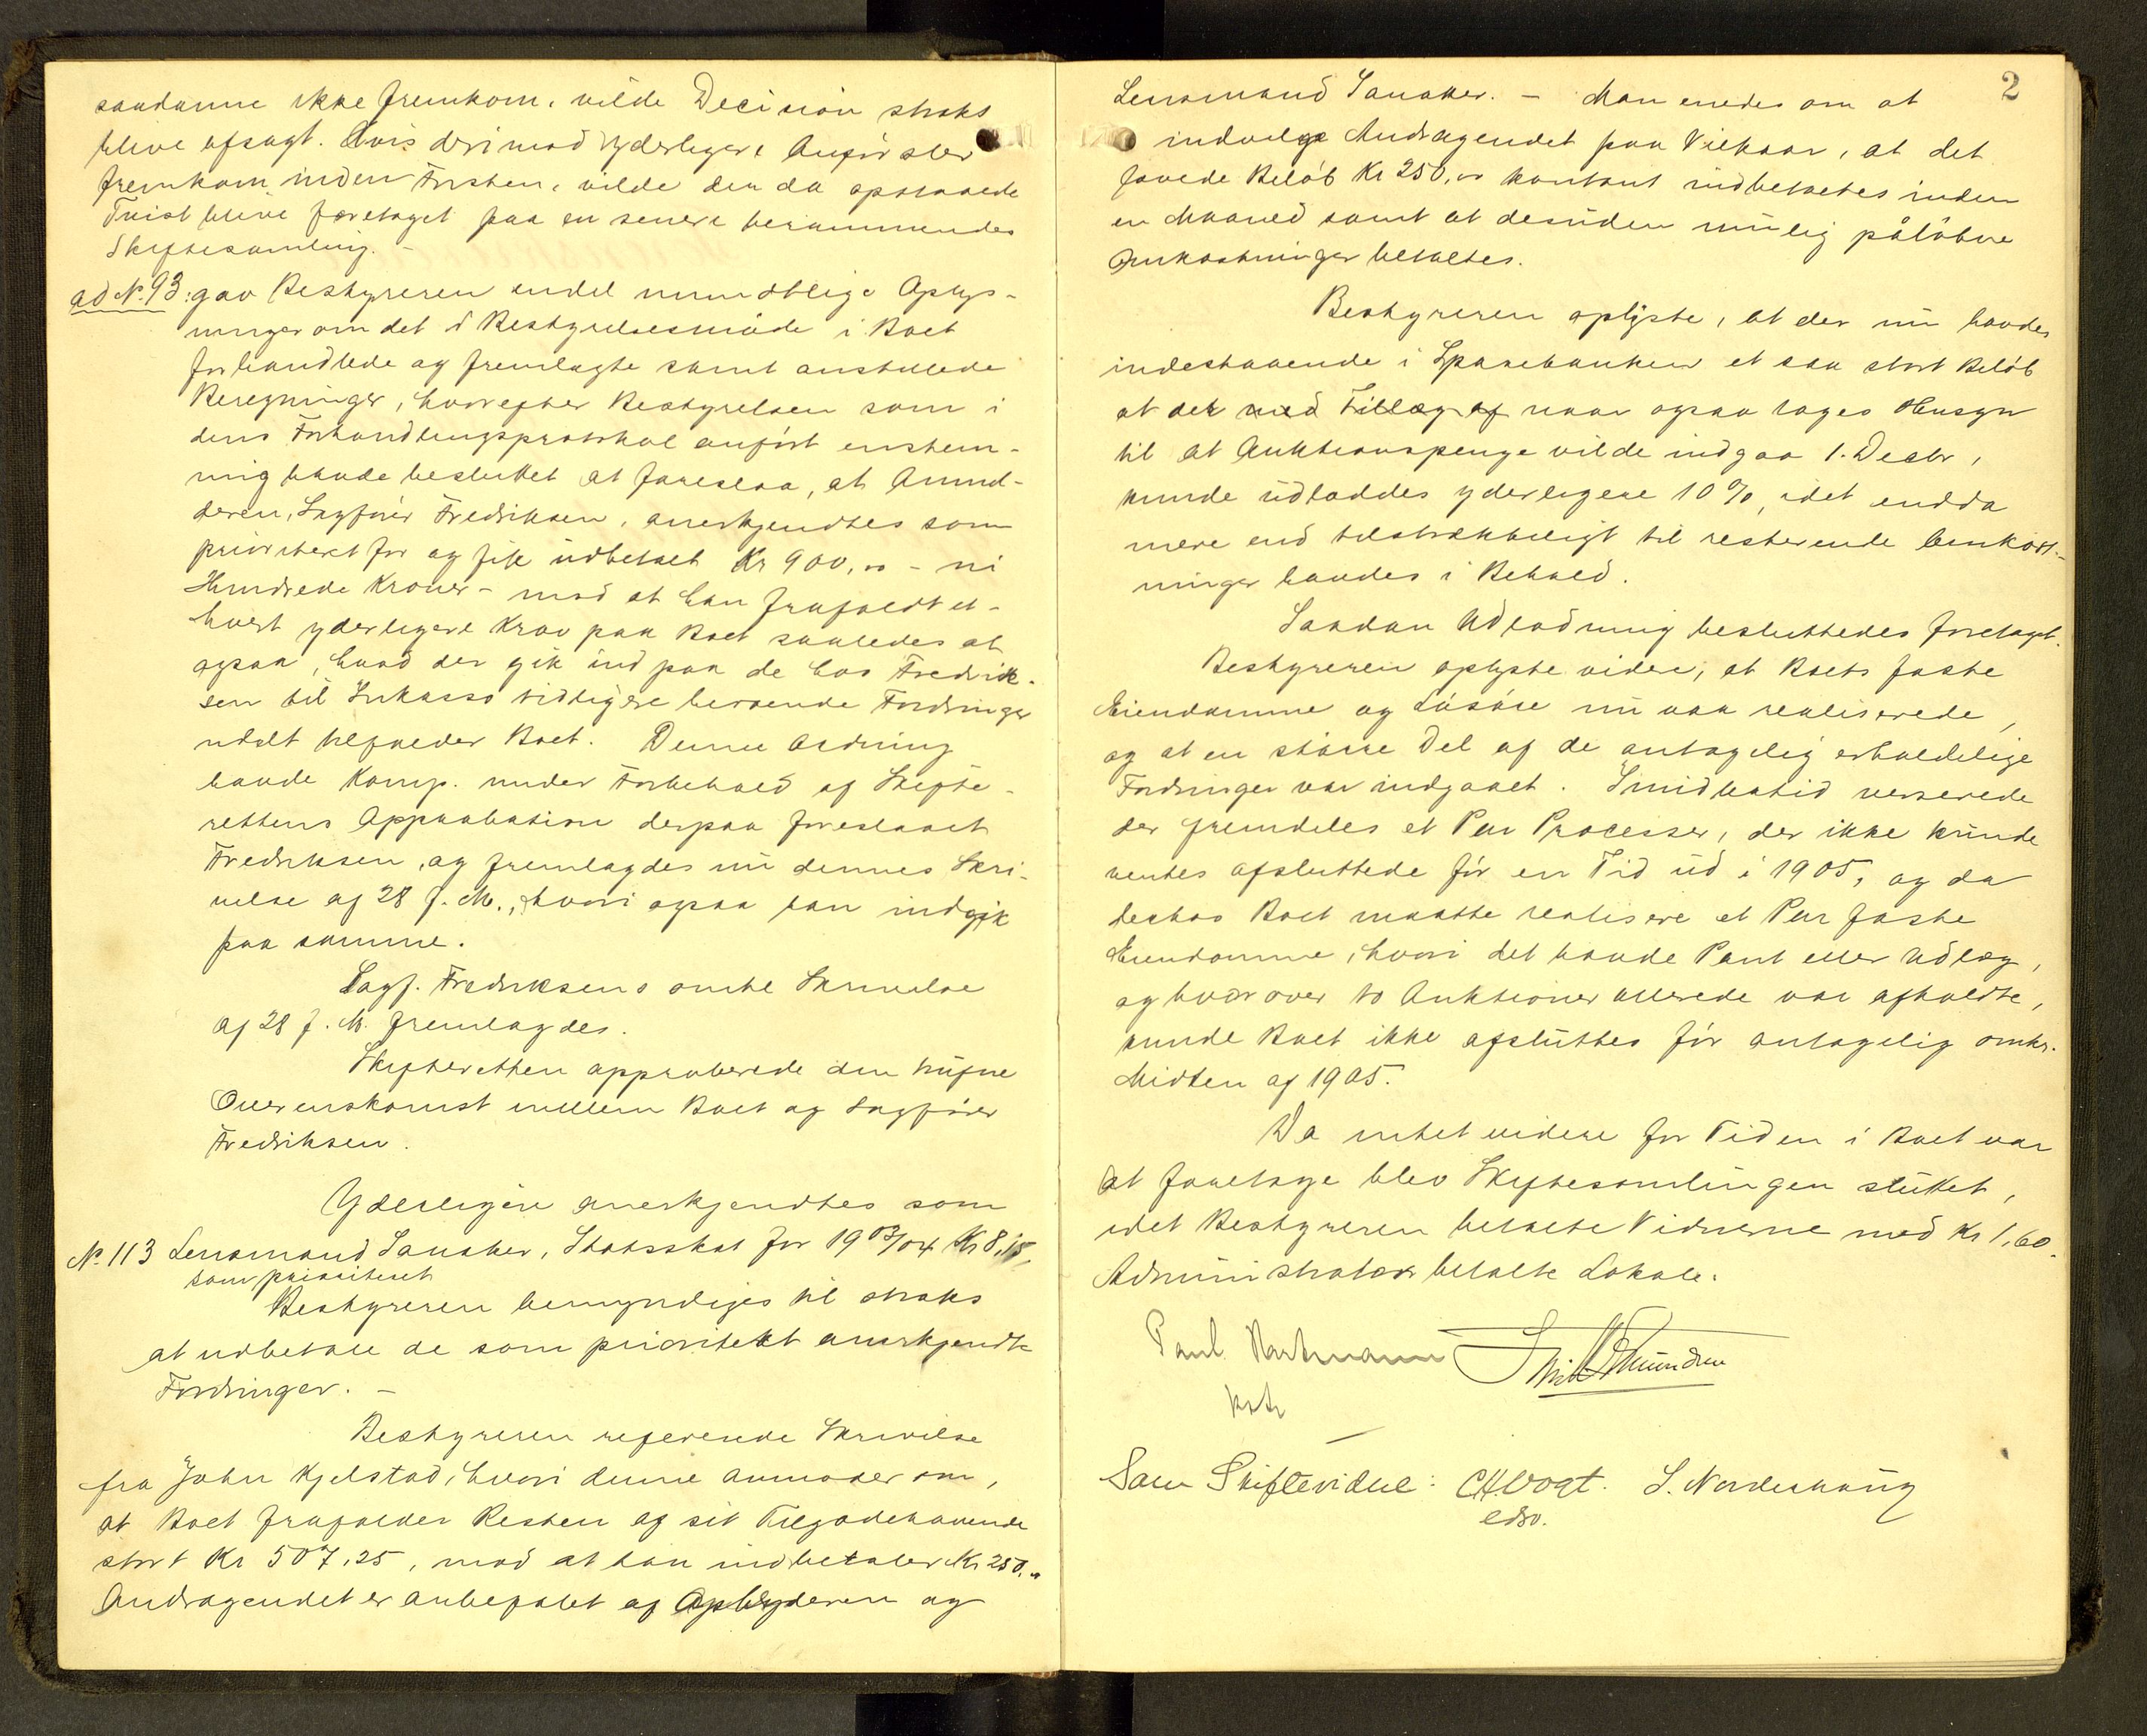 saadanne ikke fremkom, vilde Decision straks
blive afsagt. Hvis derimod yderligere Anførsler
fremkom inden Fristen, vilde den da opstaaede
Tvist blive foretaget paa en senere berammendes
Skiftesamling. -
ad No. 93: gav Bestyreren endel mundtlige Oplys-
ninger om det i Bestyrelsesmøde i Boet
forhandlede og fremlagte samt anstillede
Beregninger, hvorefter Bestyrelsen som i
dens Forhandlingsprotokol anført enstem-
mig havde besluttet at foreslaa, at Anmel-
deren, Sagfører Fredriksen, anerkjendtes som
prioriteret for og fik udbetalt Kr 900,00 - ni
Hundrede Kroner - mod at han frafaldt et-
hvert yderligere Krav paa Boet saaledes at
ogsaa, hvad der gik ind paa de hos Fredrik-
sen til Inkasso tidligere beroende Fordringer
udelt tilfalder Boet. Denne Ordning
havde Komp. under Forbehold af Skifte-
rettens Approbation derpaa foreslaaet
Fredriksen, og fremlagdes nu dennes Skri-
velse af 28 f. M., hvori ogsaa han indgik
paa samme.
Sagf. Fredriksens omtlte Skrivelse
af 28 f. M. fremlagdes.
Skifteretten approberede den trufne
Overenskomst mellem Boet og Sagfører
Fredriksen.
Yderligere anerkjendtes som
No. 113 Lensmand Sanaker, Statsskat for 1903/04 Kr 8,15,
som prioriteret
Bestyreren bemyndiges til straks
at udbetale de som prioritert anerkjendte
Fordringer. -
Bestyreren refererede Skrivelse
fra John Kjelstad, hvori denne anmoder om,
at Boet frafalder Resten af sit Tilgodehavende
stort Kr 507,25, mod at han indbetaler Kr 250,00
Andragendet er anbefalet af Opbyderen og
2
Lensmand Sanaker. - Man enedes om at
indvilge Andragendet paa Vilkaar, at det
lovede Beløb Kr 250,00 kontant indbetaltes inden
en Maaned samt at desuden mulig påløbne
Omkostninger betaltes.
Bestyreren oplyste, at der nu havdes
indestaaende i Sparebanken et saa stort Beløb
at der med Tillæg af naar ogsaa toges Hensyn
til at Auktionspenge vilde indgaa 1. Decbr,
kunde udloddes yderligere 10%, idet endda
mere end tilstrækkeligt til resterende Omkost-
ninger havdes i Behold.
Saadan Udlodning besluttedes foretaget.
Bestyreren oplyste videre, at Boets faste
Eiendomme og Løsøre nu var realiserede,
og at en større Del af de antagelig erholdelige
Fordringer var indgaaet. Imidlertid verserede
der fremdeles et Par Processer, der ikke kunde
ventes afsluttede før en Tid ud i 1905, og da
derhos Boet maatte realisere et Par faste
Eiendomme, hvori det havde Pant eller Udlæg,
og hvorover to Auktioner allerede var afholdte,
kunde Boet ikke afsluttes før antagelig omkr.
Midten af 1905.
Da intet videre for Tiden i Boet var
at foretage blev Skiftesamlingen sluttet,
idet Bestyreren betalte Vidnerne med Kr 1,60.
Administrator betalte Lokale.
Paul Hartmann
kst
Som Skiftevidne: CHVogt. S. Nordeshaug
edsv.